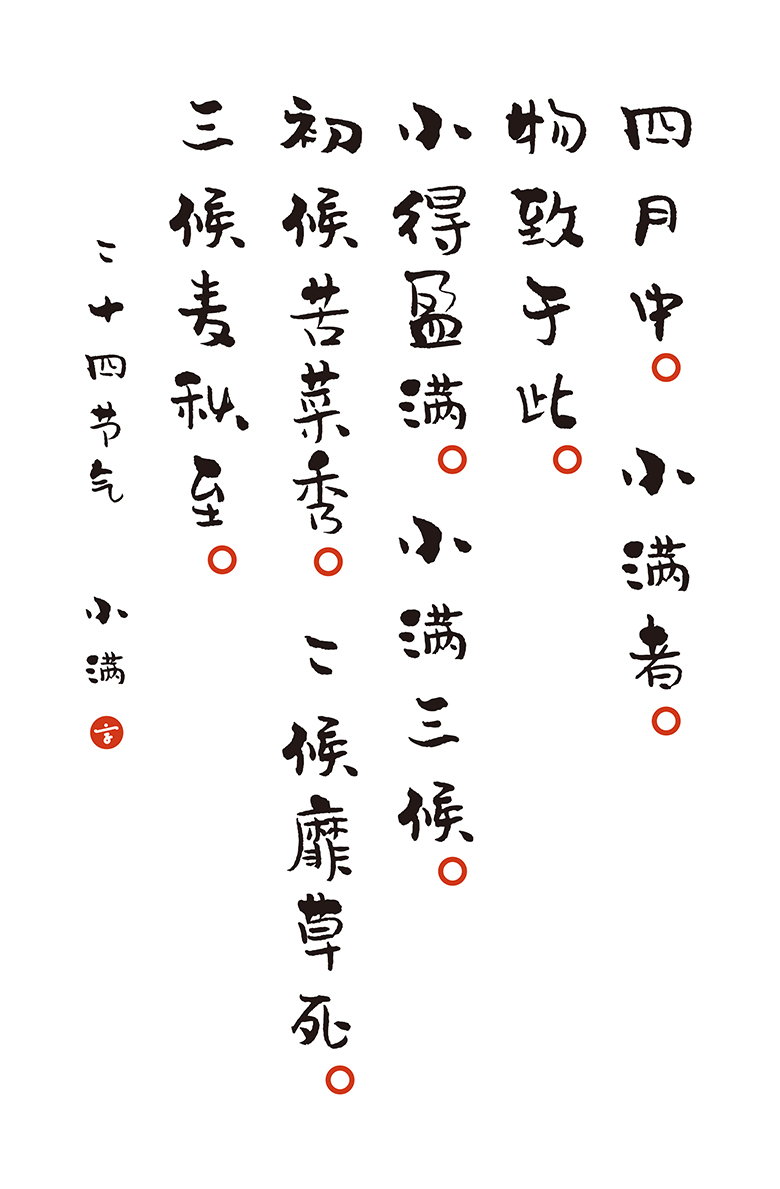 四月中。小满者。
物致于此。
小得盈满。小满三候。
初候苦菜秀。二候靡草死。
三候麦秋至。
二十四节气 小满